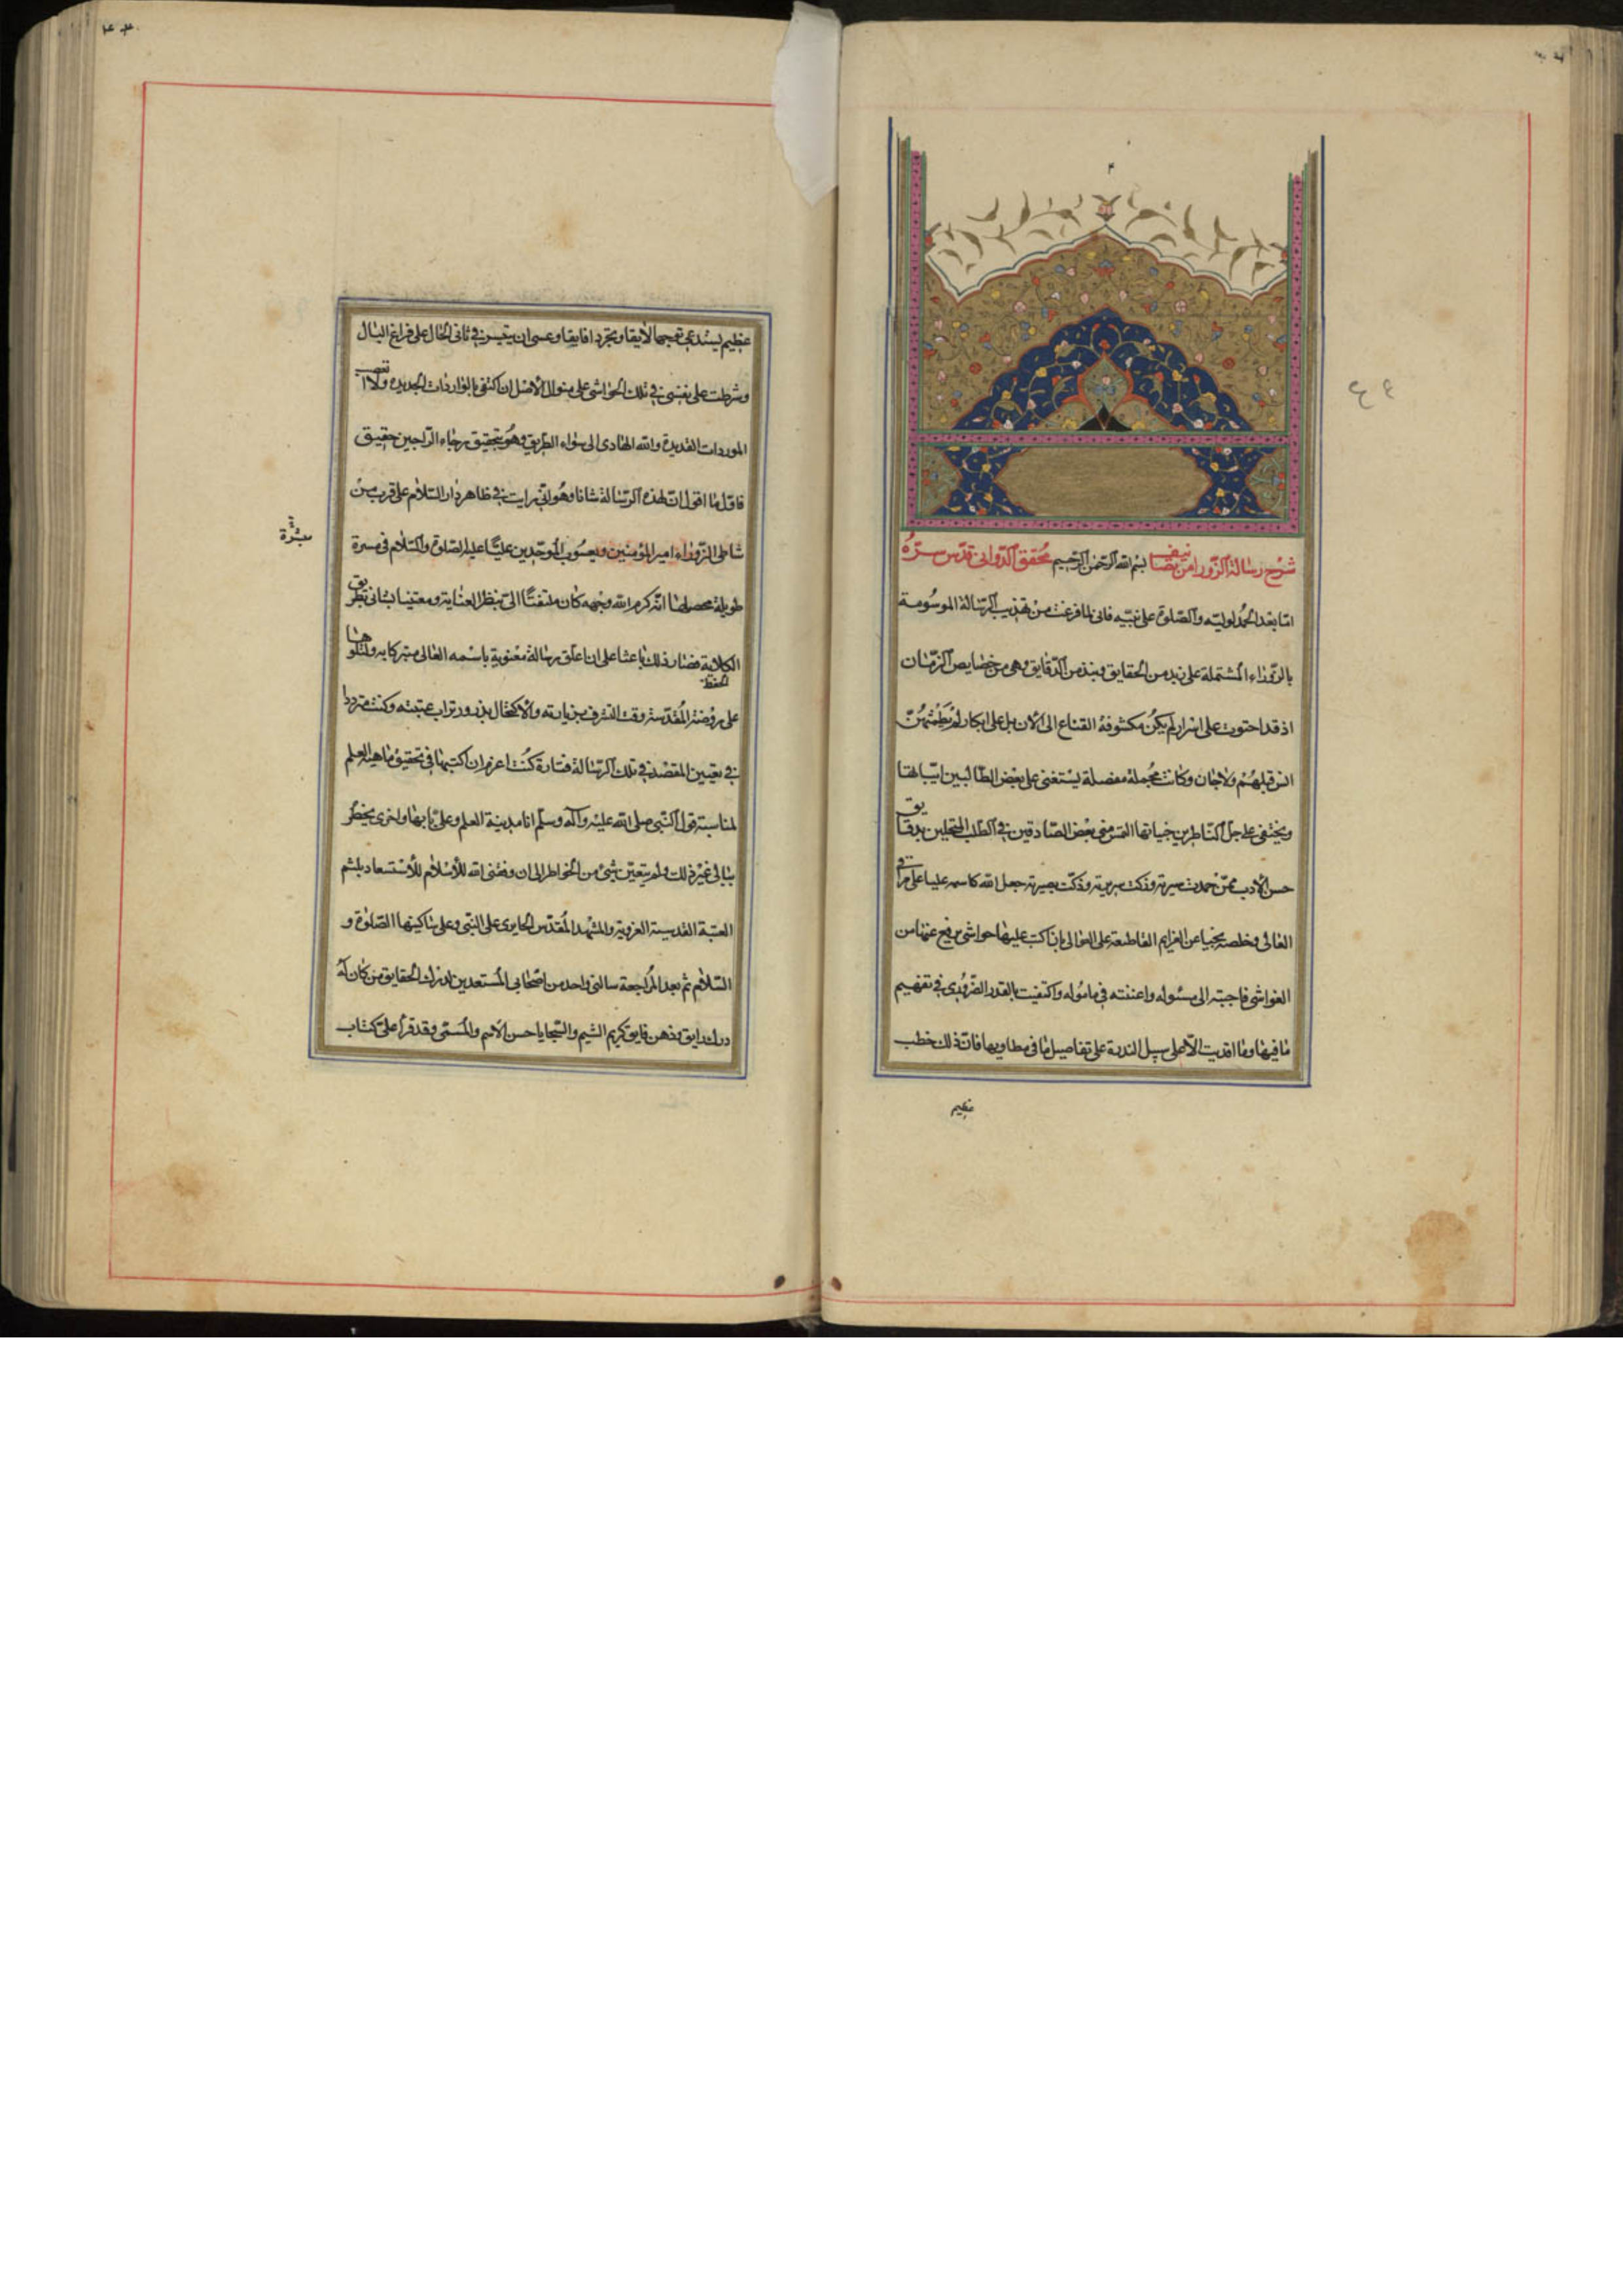 شرح رسالة الزوراء من تصانيف بسم الله الرحمن الرحيم محقق الدوانى قدس سره
اما بعد الحمد لوليه والصلوة على نبيه فانى لما فرغت من تهذيب الرسالة الموسومة
بالزوراء المشتملة على زبد من الحقايق ونبذ من الدقايق وهى من خصايص الزمان
اذ قد احتوت على اسرار لم يكن مكشوفة القناع الى الان بل على ابكار لم يطمثهن
انس قبلهم ولا جان وكانت مجملة مفصلة يستغنى على بعض الطالبين
ويختفى على جل الناظرين خبياتها التمس منى بعض الصادقين فى الطلب المتحلين بدقايق
حسن الادب ممن حمدت سيرته وذكت سريرته وذكت بصيرته جعل الله كاسمه عليا على مراقى
المعالى وخلصه نجيا عن العزايم القاطعة على العوالى بان اكتب عليها حواشى يرفع عنها من
الغواشى فاجبته الى مسئوله واعنته فى ماموله واكتفيت بالقدر الضرورى فى تفهيم
ما فيها وما اقديت الا على سبيل الندرة على تفاصيل ما فى مطاويها فان ذلك خطب
عظيم
عظيم يستدعى توجها لايقا وتجردا فايقا وعسى ان يتيسر فى ثانى الحال على فراغ البال
وشرطت على نفسى فى تلك الحواشى على منوال الاصل ان اكتفى بالواردات الجديدة ولا اتعصب
الموردات القديمة والله الهادى الى سواء الطريق وهو بتحقيق رجاء الراجين حقيق
فاول ما اقول ان لهذه الرسالة شانا وهو انى رايت فى ظاهر دار السلام على قرب من
شاطى الزوراء امير المؤمنين ويعسوب الموحدين عليا عليه الصلوة والسلام فى مبشرة
مبشرة
طويلة محصلها انه كرم الله وجهه كان ملتفتا الى بنظر العناية ومعتنيا بشانى بطريق
الكلاية فصار ذلك باعثا على ان اعلق رسالة معنونة باسمه العالى متبركا به ولتلوها
على روضته المقدسة وقت التشرف بزيارته والاكتحال بذرور تراب عتبته وكنت مترددا
فى تعيين المقصد فى تلك الرسالة فتارة كنت اعزم ان اكتبها فى تحقيق ماهية العلم
لمناسبة قول النبى صلى الله عليه وآله وسلم انا مدينة العلم وعلى بابها واخرى يخطر
ببالى غير ذلك ولم يتعين شىء من الخواطر الى ان وفقنى الله للاستسعاد بلثم
العتبة القدسية الغروية والمشهد المقدس الحايرى على النبى وعلى ساكنيها الصلوة و
السلام ثم بعد المراجعة سالنى واحد من اصحابى المستعدين لدرك الحقايق من كان له
درك رايق وذهن فايق كريم الشيم والسجايا حسن الاسم والمسمى وقد قرا على كتاب